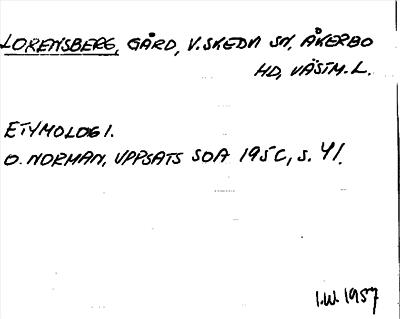 LORENSBERG, GÅRD, V. SKEDVI SN, ÅKERBO
HD, VÄSTM. L.
ETYMOLOGI.
O. NORMAN, UPPSATS SOA 195C, S. 41.
I.W. 1957